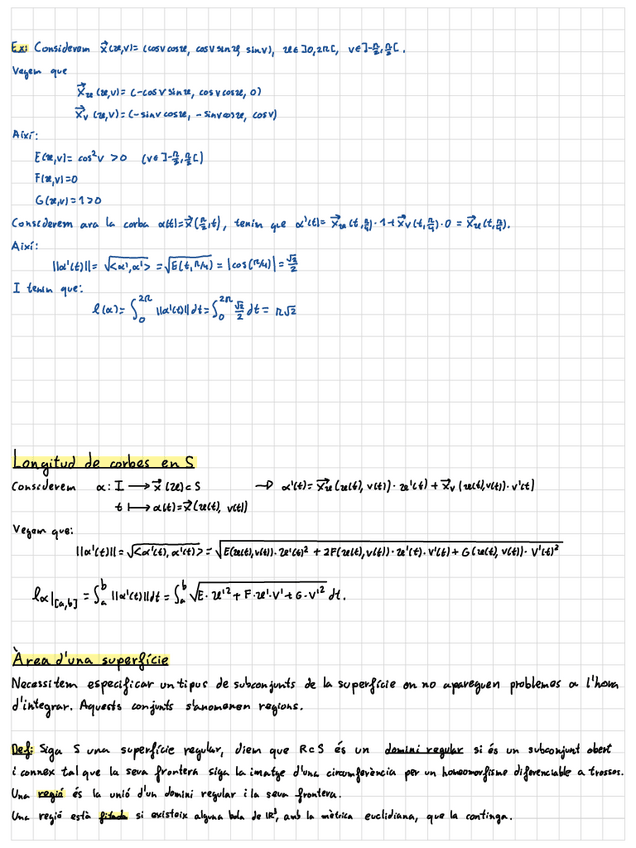 Ex: Considerem x⃗(u,v)= (cosv cosu, cosv sinu, sinv), u∈]0,2π[, v∈]-π/2,π/2[.
Vegem que
x⃗u (u,v)= (-cosv sinu, cosv cosu, 0)
x⃗v (u,v)= (-sinv cosu, -sinv cosu, cosv)
Així:
E(u,v)= cos²v >0 (v∈]-π/2,π/2[)
F(u,v)=0
G(u,v)=1>0
Considerem ara la corba α(t)=x⃗(π/2,t), tenim que α'(t)= x⃗u(t,π/4)·1+x⃗v(t,π/4)·0 = x⃗u(t,π/4).
Així:
||α'(t)||= √<α',α'> = √E(t,π/4) = |cos(π/4)| = √2/2
I tenim que:
ℓ(α)= ∫₀^2π ||α'(t)||dt = ∫₀^2π √2/2 dt = π√2
Longitud de corbes en S
Considerem α: I ⟶ x⃗(u)⊂S → α'(t)= x⃗u(u(t), v(t))·u'(t) + x⃗v(u(t),v(t))·v'(t)
t ⟼ α(t)=x⃗(u(t), v(t))
Vegem que:
||α'(t)|| = √<α'(t), α'(t)> = √E(u(t),v(t))·u'(t)² + 2F(u(t),v(t))·u'(t)·v'(t) + G(u(t), v(t))·v'(t)²
ℓα|[a,b] = ∫ₐᵇ ||α'(t)||dt = ∫ₐᵇ √E·u'² + F·u'·v' + G·v'² dt.
Àrea d'una superfície
Necessitem especificar un tipus de subconjunts de la superfície on no apareguen problemes a l'hora
d'integrar. Aquests conjunts s'anomenen regions.
Def: Siga S una superfície regular, diem que R⊂S és un domini regular si és un subconjunt obert
i connex tal que la seva frontera siga la imatge d'una circumferència per un homeomorfisme diferenciable a trossos.
Una regió és la unió d'un domini regular i la seva frontera.
Una regió està fitada si existeix alguna bola de ℝ³, amb la mètrica euclidiana, que la continga.